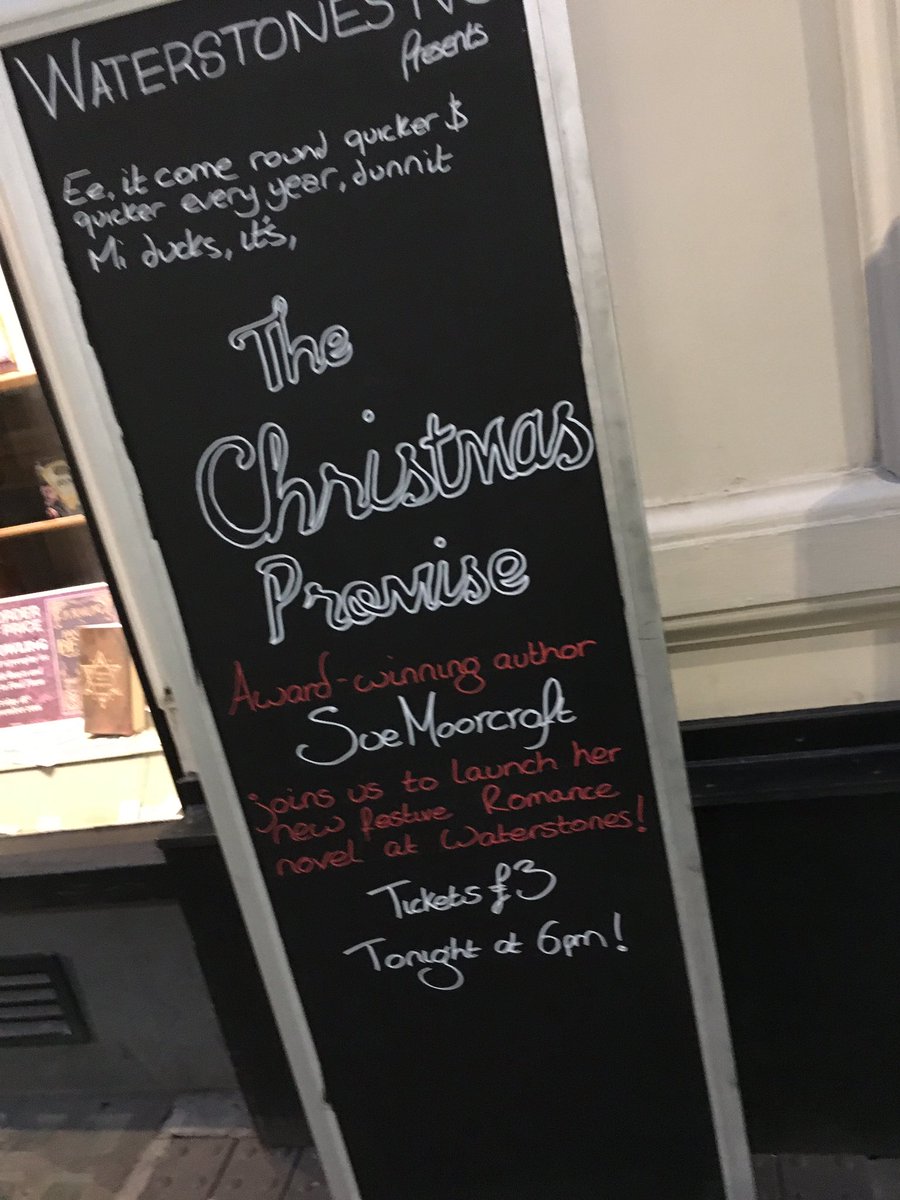 WATERSTONES NO
Presents
Ee, it come round quicker &
quicker every year, dunnit
Mi ducks, it's,
The
Christmas
Promise
Award-winning author
Sue Moorcroft
joins us to launch her
new festive Romance
novel at Waterstones!
Tickets £3
Tonight at 6pm!
ORDER
PRICE